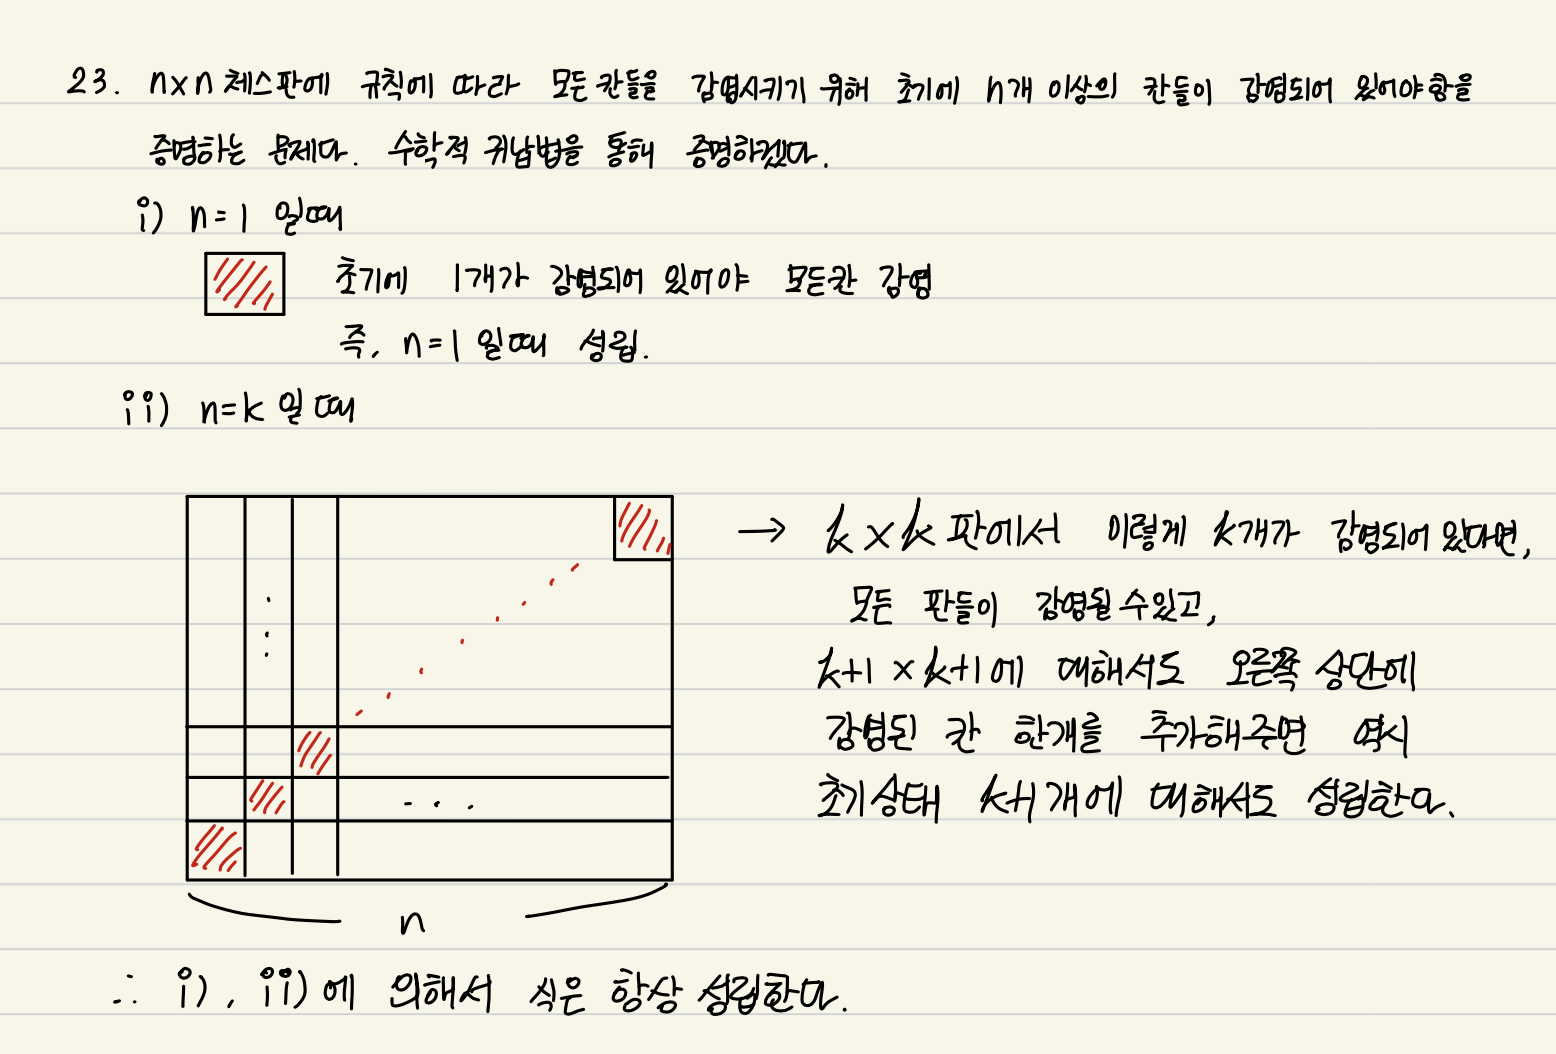 23. n×n 체스판에 규칙에 따라 모든 칸들을 감염시키기 위해 초기에 n개 이상의 칸들이 감염되어 있어야함을
증명하는 문제다. 수학적 귀납법을 통해 증명하겠다.
i) n=1 일때
초기에 1개가 감염되어 있어야 모든칸 감염
즉, n=1 일때 성립.
ii) n=k 일때
→ k×k 판에서 이렇게 k개가 감염되어 있다면,
모든 판들이 감염될 수 있고,
k+1 × k+1에 대해서도 오른쪽 상단에
감염된 칸 한개를 추가해주면 역시
초기상태 k+1개에 대해서도 성립한다.
n
∴ i), ii)에 의해서 식은 항상 성립한다.